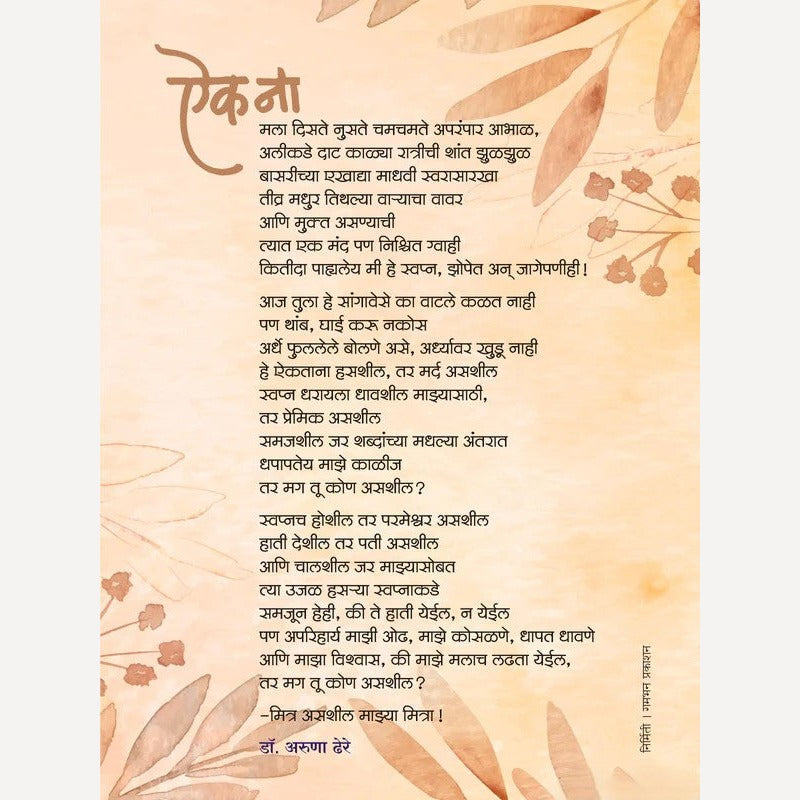 ऐक ना
मला दिसते नुसते चमचमते अपरंपार आभाळ,
अलीकडे दाट काळ्या रात्रीची शांत झुळझुळ
बासरीच्या एखाद्या माधवी स्वरासारखा
तीव्र मधुर तिथल्या वाऱ्याचा वावर
आणि मुक्त असण्याची
त्यात एक मंद पण निश्चित ग्वाही
कितीदा पाह्यलेय मी हे स्वप्न, झोपेत अन् जागेपणीही!
आज तुला हे सांगावेसे का वाटले कळत नाही
पण थांब, घाई करू नकोस
अर्धे फुललेले बोलणे असे, अर्ध्यावर खुडू नाही
हे ऐकताना हसशील, तर मर्द असशील
स्वप्न धरायला धावशील माझ्यासाठी,
तर प्रेमिक असशील
समजशील जर शब्दांच्या मधल्या अंतरात
धपापतेय माझे काळीज
तर मग तू कोण असशील?
स्वप्नच होशील तर परमेश्वर असशील
हाती देशील तर पती असशील
आणि चालशील जर माझ्यासोबत
त्या उजळ हसऱ्या स्वप्नाकडे
समजून हेही, की ते हाती येईल, न येईल
पण अपरिहार्य माझी ओढ, माझे कोसळणे, धापत धावणे
आणि माझा विश्वास, की माझे मलाच लढता येईल,
तर मग तू कोण असशील?
-मित्र असशील माझ्या मित्रा!
डॉ. अरुणा ढेरे
निर्मिती । गमभन प्रकाशन